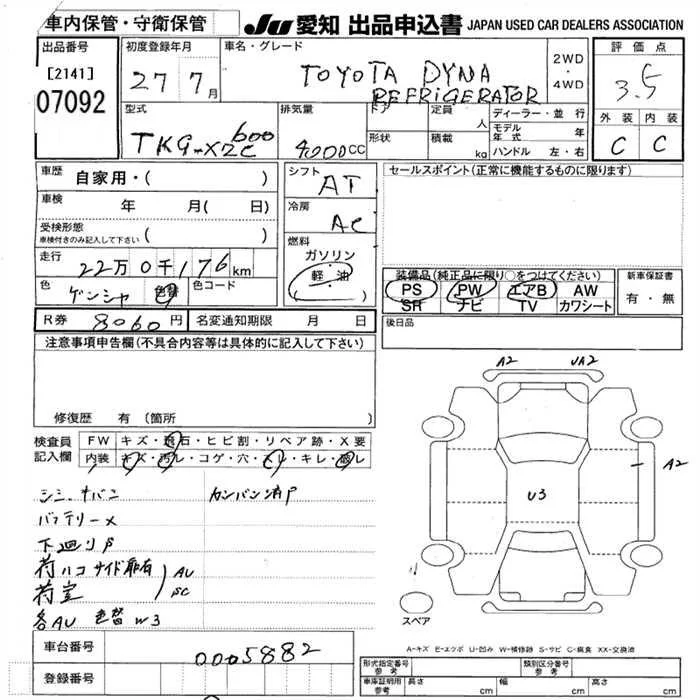 車内保管・守衛保管
JU 愛知 出品申込書 JAPAN USED CAR DEALERS ASSOCIATION
出品番号
[2141]
07092
初度登録年月
27 7月
車名・グレード
TOYOTA DYNA
REFRIGERATOR
2WD
・
4WD
評価点
3.5
外装 内装
C C
型式
TKG-XZC600
排気量
4000CC
ドア
形状
定員
人
積載
kg
ディーラー・並行
モデル年式 年
ハンドル 左・右
車歴
自家用・( )
車検
年 月( 日)
受検形態
車検付きのみ記入して下さい ( )
走行
22万0千176km
色
ゲンシャ
色替
色コード
シフト
AT
冷房
AC
燃料
ガソリン
軽・油
( )
セールスポイント(正常に機能するものに限ります)
装備品(純正品に限り○をつけてください)
PS PW エアB AW
SR ナビ TV カワシート
新車保証書
有・無
R券 8060円
名変通知期限 月 日
後日品
注意事項申告欄(不具合内容等は具体的に記入して下さい)
修復歴 有(箇所
検査員
記入欄
FW キズ・飛石・ヒビ割・リペア跡・X要
内装 キズ・汚レ・コゲ・穴・スレ・キレ・破レ
カンバン済P
バッテリーX
下廻りP
荷ハコサイド
荷室
AU
SC
各AU 色替W3
A2 UA2
A2
U3
スペア
A-キズ E-エクボ U-凹み W-補修跡 S-サビ C-腐食 XX-交換済
車台番号
0005882
登録番号
形式指定番号
参考
類別区分番号
参考
車庫証明用
参考
長さ cm
幅 cm
高さ cm